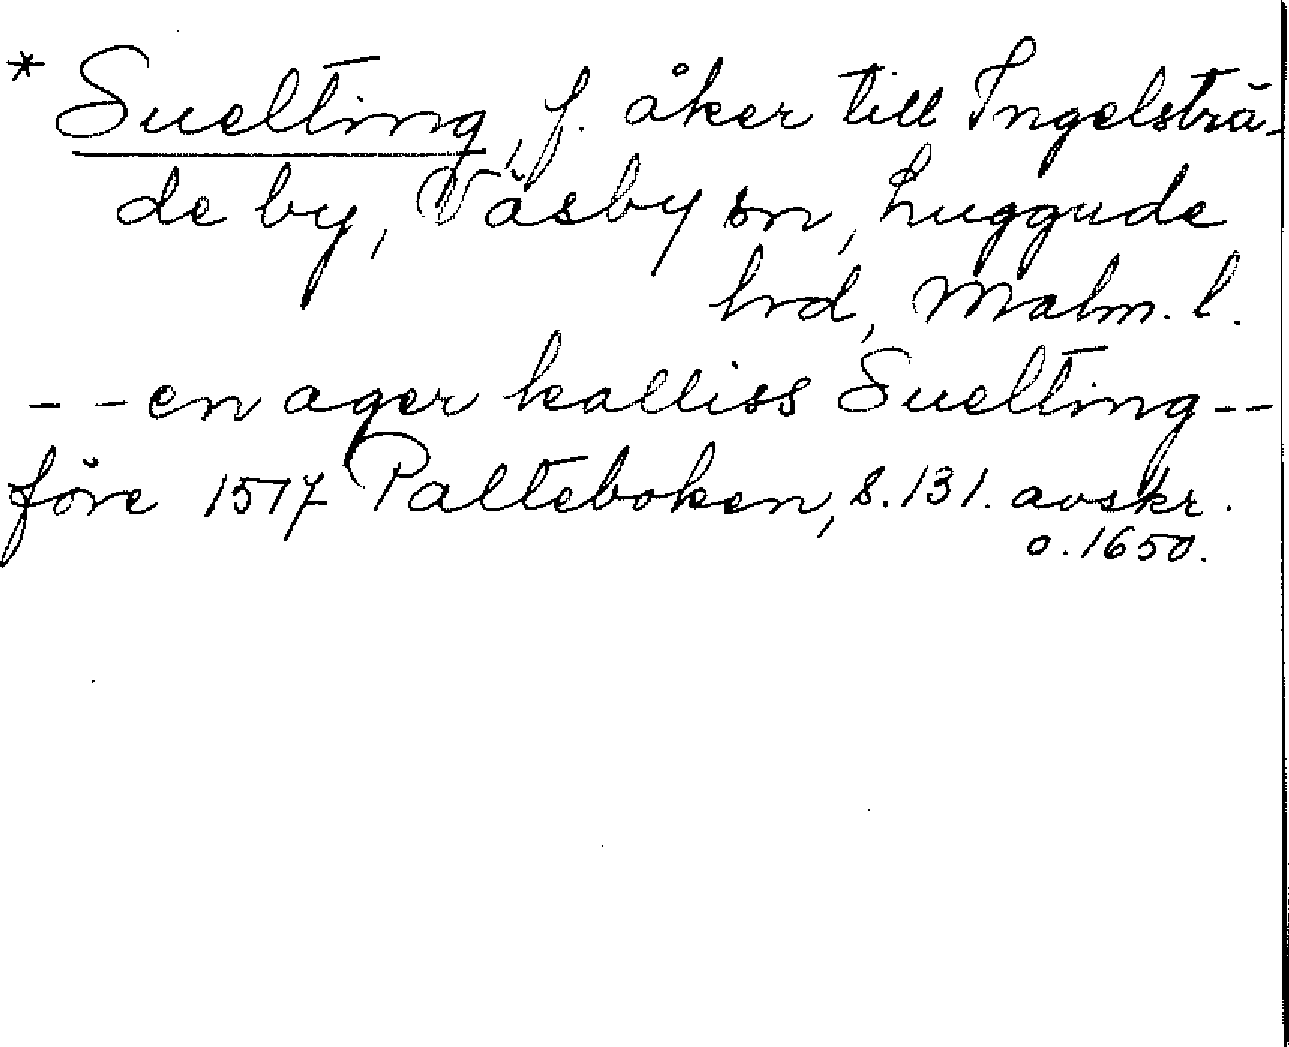 * Suelting, f. åker till Ingelsträ-
de by, Väsby sn, Luggude
hrd, Malm. l.
- - en ager kalliss Suelting - -
före 1517 Palteboken, s. 131. avskr.
o. 1650.